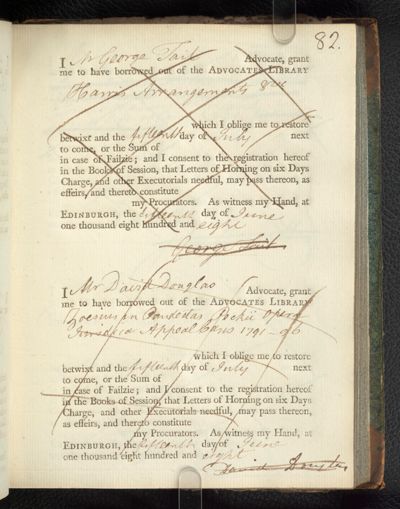 82.
I Mr George Tait Advocate, grant
me to have borrowed out of the ADVOCATES LIBRARY
Harris Arrangements 8vo
which I oblige me to restore
betwixt and the fifteenth day of July next
to come, or the Sum of
in case of Failzie; and I consent to the registration hereof
in the Books of Session, that Letters of Horning on six Days
Charge, and other Executorials needful, may pass thereon, as
effeirs, and thereto constitute
my Procurators. As witness my Hand, at
EDINBURGH, the fifteenth day of June
one thousand eight hundred and eight
George Tait
I Mr David Douglas Advocate, grant
me to have borrowed out of the ADVOCATES LIBRARY
Opera
Appeal Cases 1791-96
which I oblige me to restore
betwixt and the fifteenth day of July next
to come, or the Sum of
in case of Failzie; and I consent to the registration hereof
in the Books of Session, that Letters of Horning on six Days
Charge, and other Executorials needful, may pass thereon,
as effeirs, and thereto constitute
my Procurators. As witness my Hand, at
EDINBURGH, the fifteenth day of June
one thousand eight hundred and eight
David Douglas